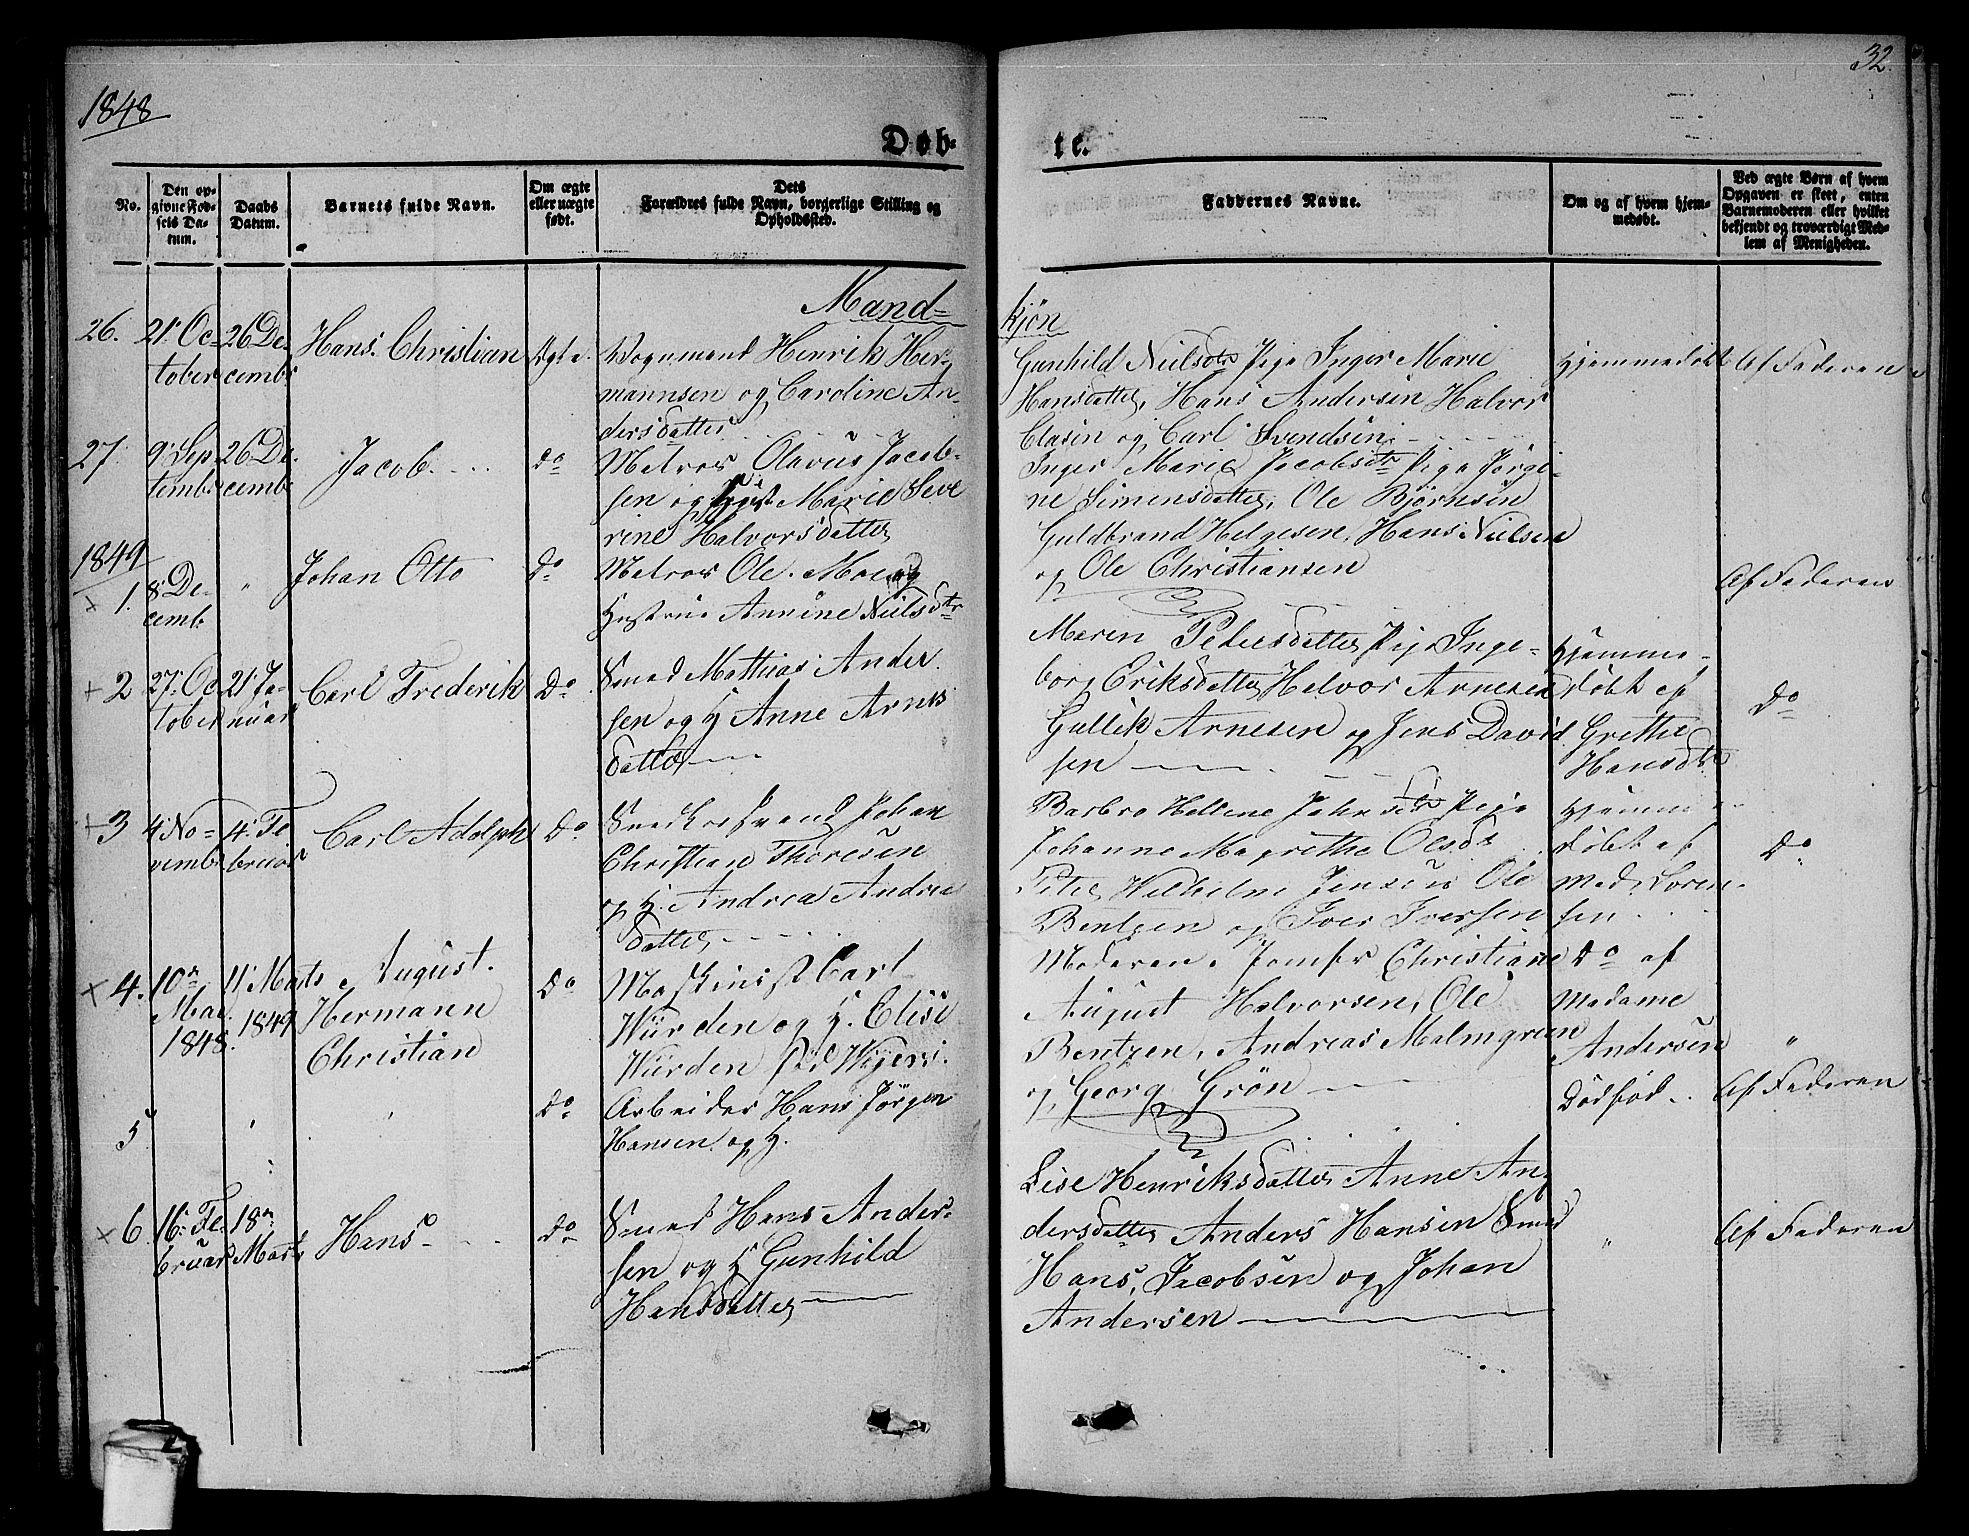 1848
32.
Døb-
te.
No.
Den op-
givne Fød-
sels Da-
tum.
Daabs
Datum.
Barnets fulde Navn.
Om ægte
eller uægte
født.
Dets
Forældres fulde Navn, borgerlige Stilling og
Opholdssted.
Faddernes Navne.
Om og af hvem hjem-
medøbt.
Ved ægte Børn af hvem
Opgaven er skeet, enten
Barnemoderen eller hvilket
bekjendt og troværdigt Med-
lem af Menigheden.
Mand-
kjön
26. 21 Oc- 26 De- Hans Christian Ægte. Vognmand Henrik Her-
tober cembr mannsen og Caroline An-
dersdatter
Gunhild Nielsdtr Pige Inger Marie
Hansdatter, Hans Andersen Halvor
Clasen og Carl Svendsen
Hjemmedøbt
Af Faderen
27. 9 Sep- 26 De- Jacob. do Matros Olavus Jacob-
tembr cembr sen og Marie Seve
rine Halvorsdatter
Inger Marie Jacobsdtr Pige Jörgi-
ne Simensdatter, Ole Björnsen
Guldbrand Helgesen, Hans Nielsen
og Ole Christiansen
1849
1. 8 De- " Johan Otto Do Matros Ole Moe og
cemb. Hustrue Annine Nielsdtr
Af Faderen
+ 2 27 Oc- 21 Ja- Carl Frederik Do Smed Mathias Ander
tober nuar sen og H Anne Arnes
datter
Maren Petersdatter Pige Inge-
borg Eriksdatter Halvor Arnesen
Gullik Arnesen og Jens David
sen
Hjemme-
døbt af
Grethe
Hansdtr
Do
+ 3 4 No- 4 Fe Carl Adolph Do Snedkersvend Johan
vembr bruar Christian Thoresen
og H. Andrea Andrea
datter
Barbro Hellene Jahnsdtr Pige
Johanne Magrethe Olsdtr
Peter Wilhelm Jensen Ole
Bentzen og Iver Iversen
Hjemme
døbt af
Mad. Soren-
sen
Do
x 4. 10n 11 Marts August Do Maskinist Carl
Mai 1849 Hermann Würden og H. Elise
1848. Christian Würden fød
Moderen, Jomfr Christiane
August Halvorsen, Ole
Bentzen, Andreas Malmgreen
og Georg Grön
Do af
Madame
Andersen
"
5 Do Arbeider Hans Jörgen
Hansen og H.
Dödfød.
Af Faderen
x 6. 16 Fe- 18n Hans Do Smed Hans Ander-
bruar Marts sen og H Gunhild
Hansdatter
Lise Henriksdatter Anne An
dersdatter Anders Hansen Smed
Hans Jacobsen og Johan
Andersen
"
Af Faderen